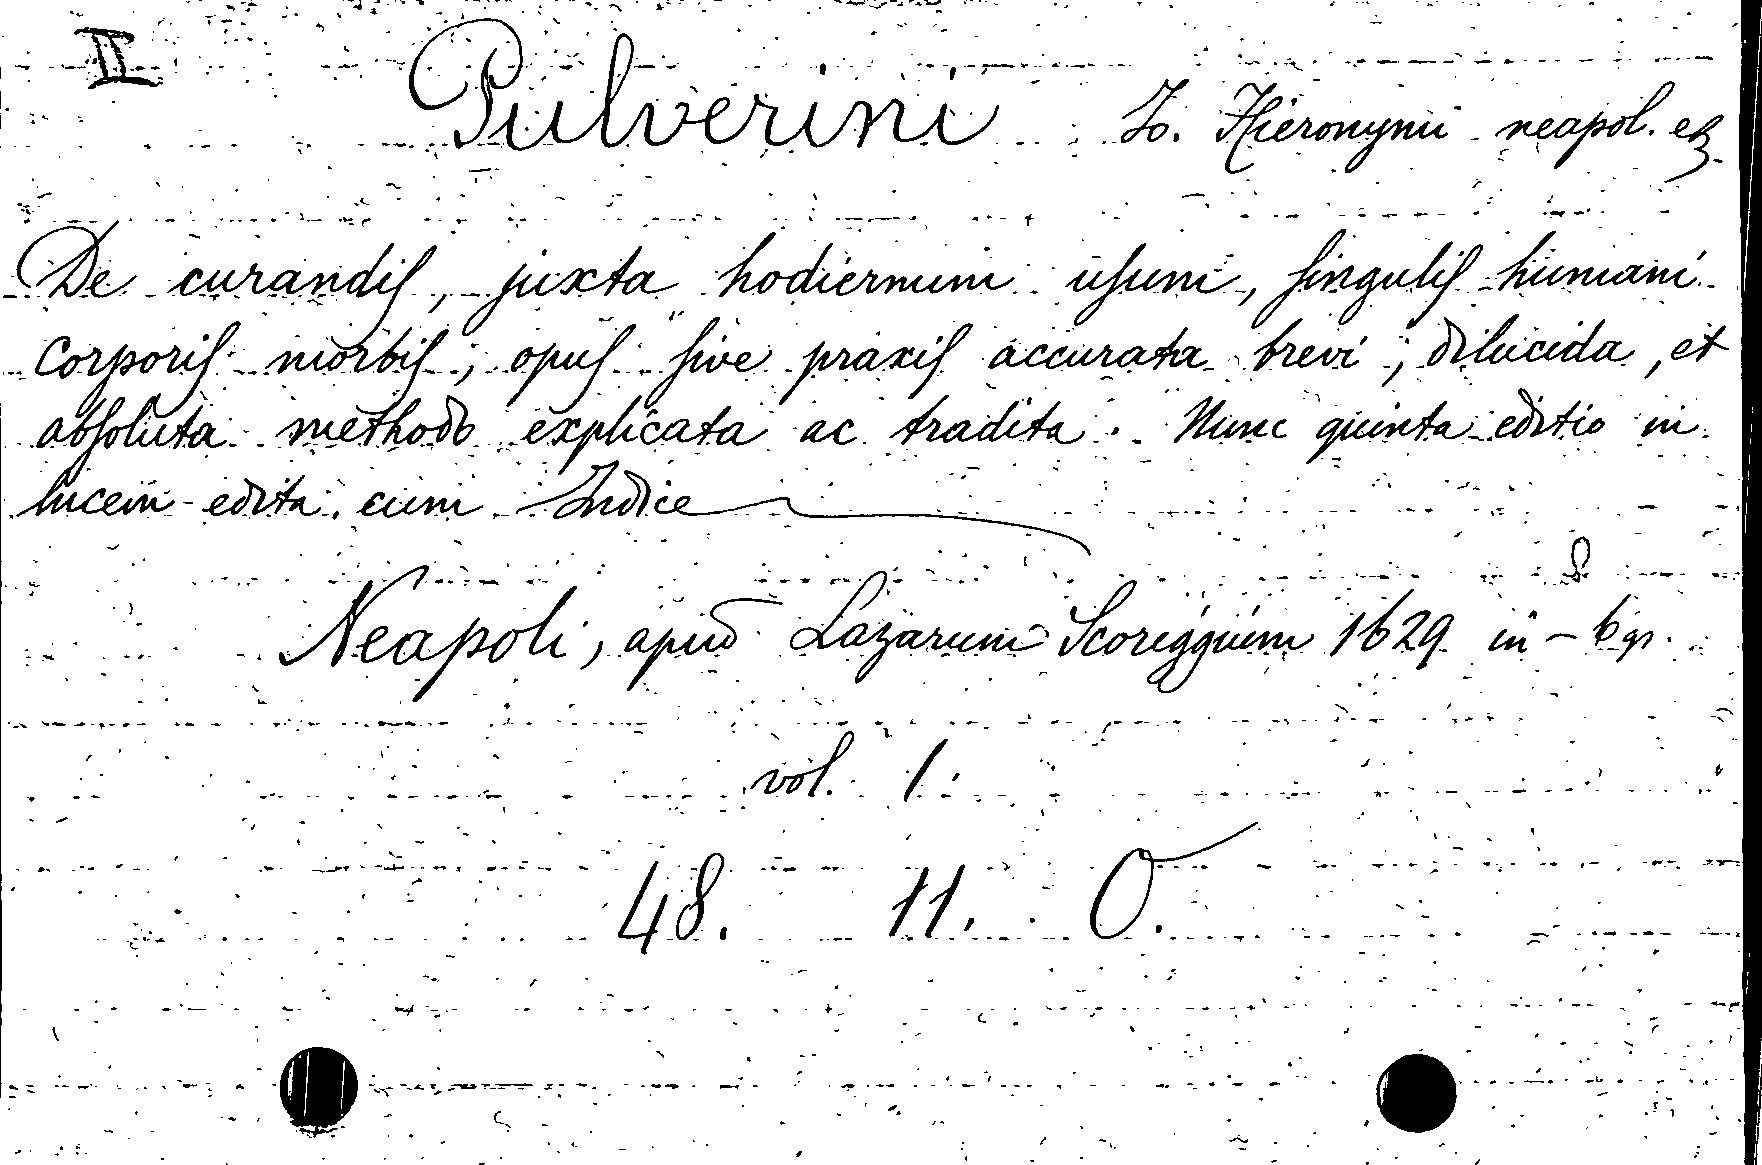 II
Pulverini Io. Hieronymi neapol. etc.
De curandiſ, juxta hodiernum uſum, ſinguliſ humani
corporiſ morbiſ, opuſ ſive praxiſ accurata brevi, dilucida, et
abſoluta methodo explicata ac tradita. Nunc quinta editio in
lucem edita. cum Indice
Neapoli, apud Lazarum Scoriggium 1629 in -
vol. 1.
48. 11. O.